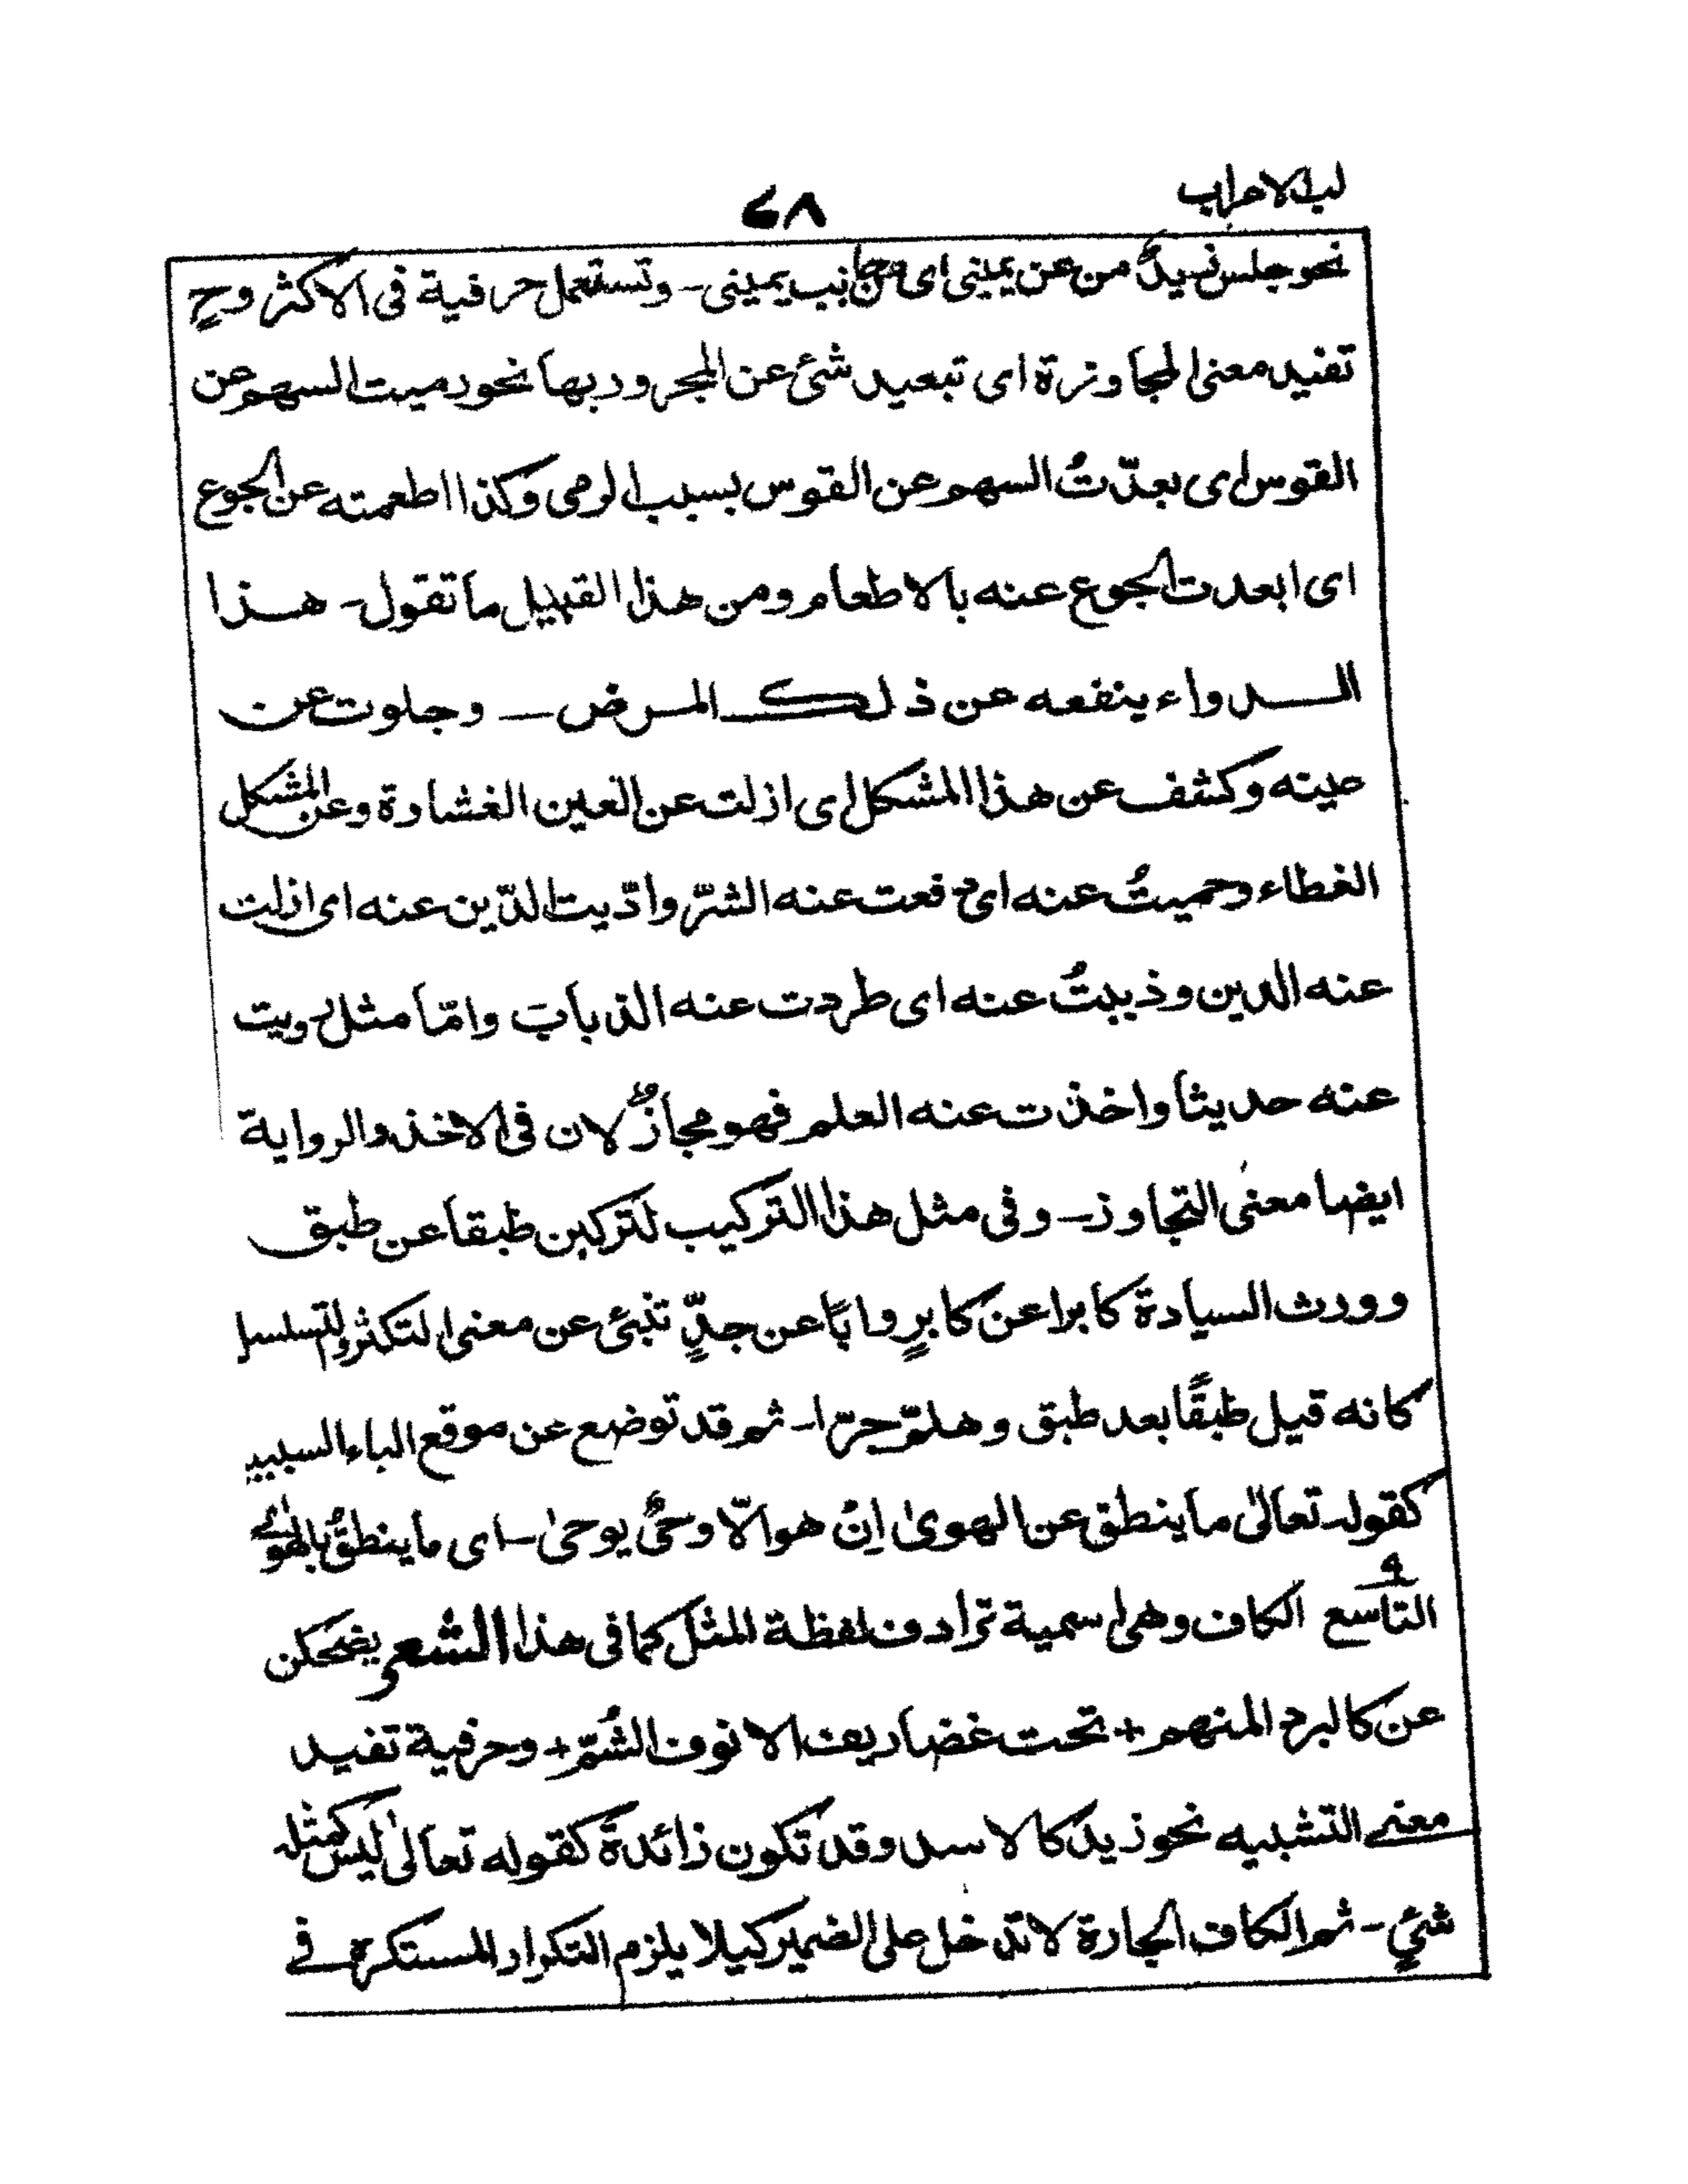 لب الاعراب
٧٨
نحو جلس زيدٌ من عن يميني اى من جانب يمينى - وتستعمل حرفية فى الاكثر وحٍ
تفيد معنى المجاوزة اى تبعيد شئ عن المجرور بها نحو رميت السهم عن
القوس اى بعدّتُ السهم عن القوس بسبب الرمى وكذا اطعمته عن الجوع
اى ابعدت الجوع عنه بالاطعام ومن هذا القبيل ما تقول - هذا
الدواء ينفعه عن ذلك المرض - وجلوت عن
عينه وكشف عن هذا المشكل اى ازلت عن العين الغشاوة وعن المشكل
الغطاء وحميتُ عنه اى دفعت عنه الشرّ وادّيت الدّين عنه اى ازلت
عنه الدين وذببتُ عنه اى طردت عنه الذباب وامّا مثل رويت
عنه حديثا واخذت عنه العلم فهو مجازٌ لان فى الاخذ والرواية
ايضا معنى التجاوز - وفى مثل هذا التركيب لتركبن طبقا عن طبق
وورث السيادة كابرا عن كابرٍ وابًا عن جدٍّ تنبئ عن معنى التكثر والتسلسل
كانه قيل طبقًا بعد طبق وهلمّ جرّا - ثم قد توضع عن موقع الباء السببية
كقوله تعالىٰ ما ينطق عن الهوىٰ اِنْ هو الّا وحىٌ يوحىٰ - اى ما ينطقُ بالهوٰے
٩
التاسع الكاف وهى اسمية ترادف لفظة المثل كما فى هذا الشعر يضحكن
عن كالبرد المنهم + تحت غضاريف الانوف الشُمّ + وحرفية تفيد
معنے التشبيه نحو زيدٌ كالاسد وقد تكون زائدة كقوله تعالىٰ ليس كمثله
شئٍ - ثم الكاف الجارة لا تدخل على الضمير كيلا يلزم التكرار المستكره فے